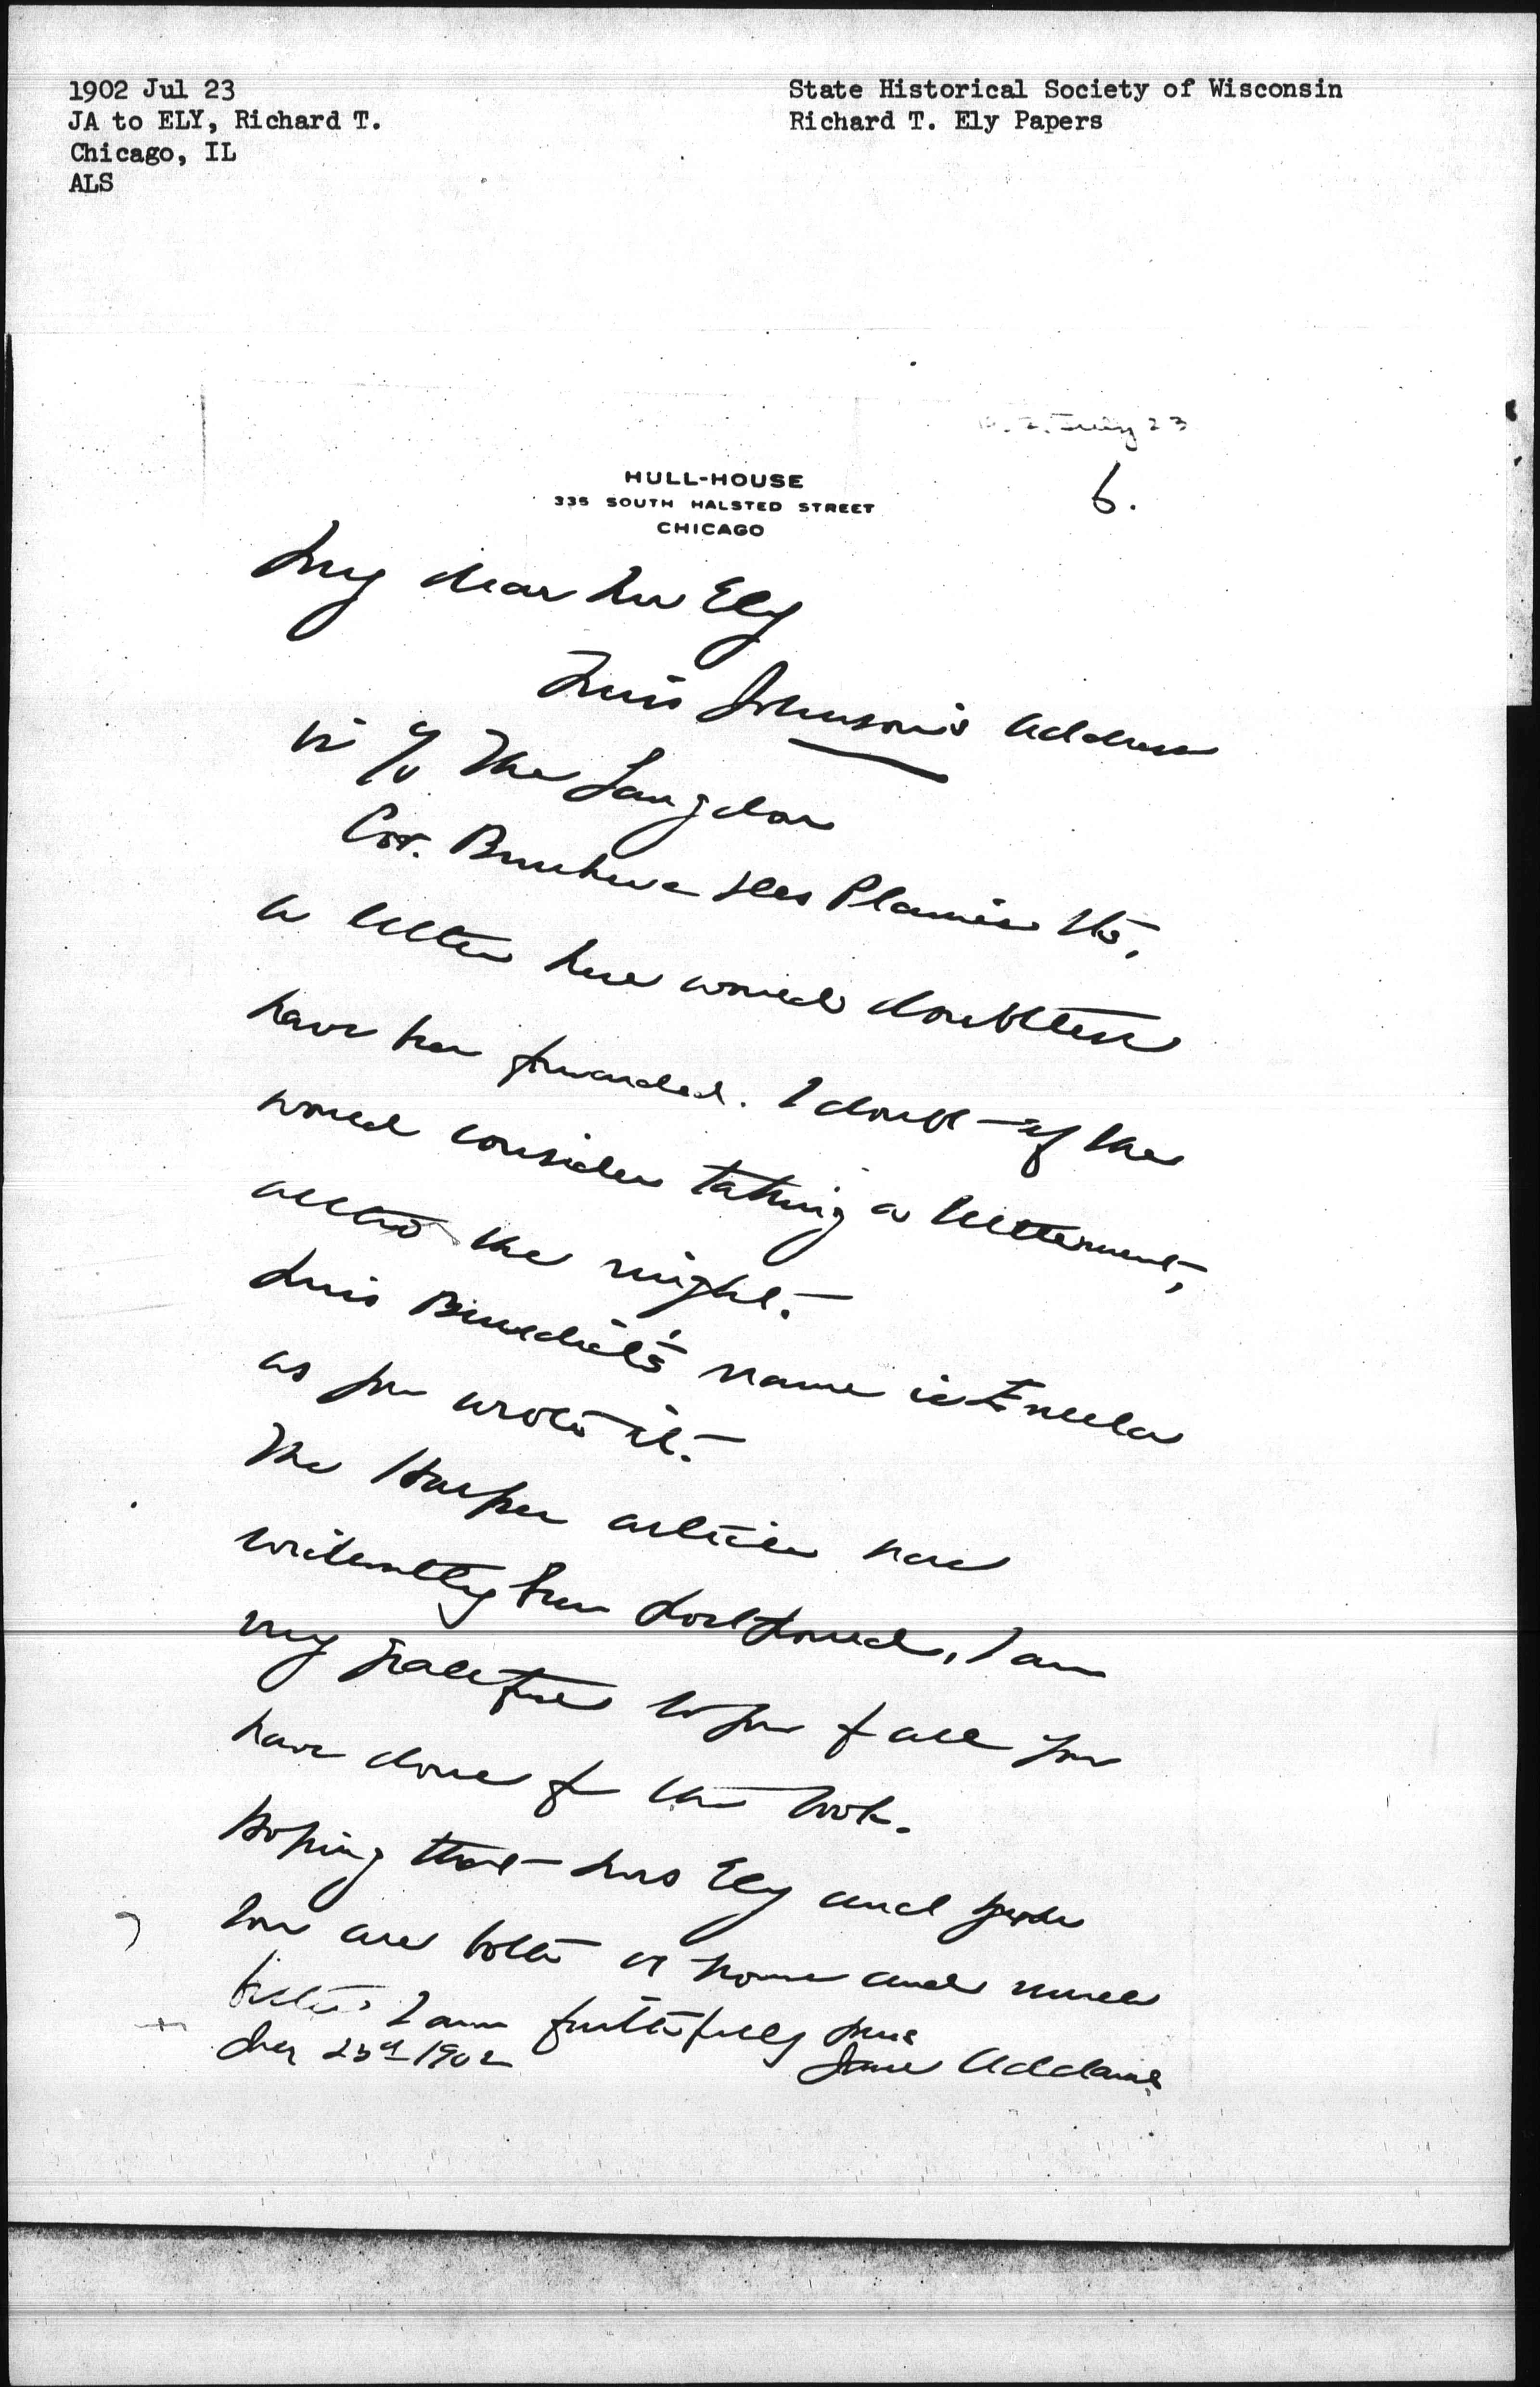 1902 Jul 23
JA to ELY, Richard T.
Chicago, IL
ALS
State Historical Society of Wisconsin
Richard T. Ely Papers
July 23
6.
HULL-HOUSE
335 SOUTH HALSTED STREET
CHICAGO
My dear Mr Ely
Miss Johnson's address
is c/o The Langdon
Cor. Bunker & Des Plaines Sts.
a letter here would doubtless
have been forwarded. I doubt if she
would consider taking a settlement,
altho she might.
Miss Benedict's name is Enella
as you wrote it.
The Harper article has
evidently been postponed, I am
very grateful to you for all you
have done for the book.
Hoping that Mrs Ely and
son are both at home and much
better I am faithfully yours
Jane Addams
July 23d 1902